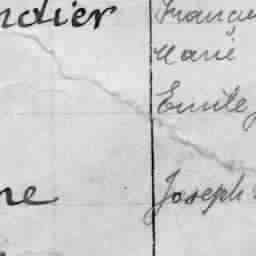 ndier Franci
Marie
Emile
ne Joseph